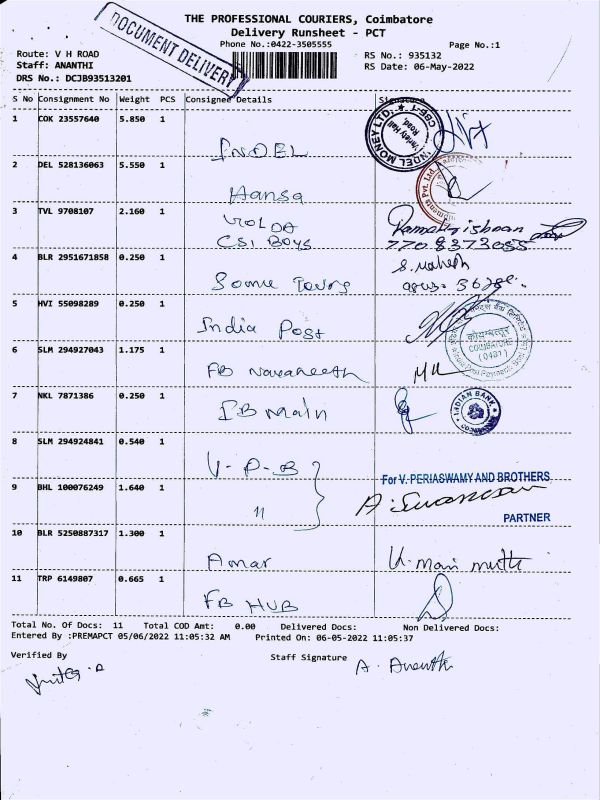 THE PROFESSIONAL COURIERS, Coimbatore
Delivery Runsheet - PCT
Phone No.:0422-3505555
Page No.:1
DOCUMENT DELIVERY
Route: V H ROAD
Staff: ANANTHI
DRS No.: DCJB93513201
RS No.: 935132
RS Date: 06-May-2022
S No Consignment No Weight PCS Consignee Details Signature
1 COK 23557640 5.850 1
INDEL
INDEL MONEY LTD. CBE-1 Variety Hall Road
2 DEL 528136063 5.550 1
Hansa
Pvt. Ltd.
3 TVL 9708107 2.160 1
CSI Boys
Ramakrishnan
7708373055
4 BLR 2951671858 0.250 1
Some Tours
S. Mahesh
5 HVI 55098289 0.250 1
India Post
कोयम्बत्तूर
COIMBATORE
(0481)
6 SLM 294927043 1.175 1
FB Navaneeth
7 NKL 7871386 0.250 1
IB Main
INDIAN BANK
8 SLM 294924841 0.540 1
V-P-B
For V. PERIASWAMY AND BROTHERS
9 BHL 100076249 1.640 1
11
PARTNER
10 BLR 5250887317 1.300 1
Amar
11 TRP 6149807 0.665 1
FB HUB
Total No. Of Docs: 11 Total COD Amt: 0.00 Delivered Docs: Non Delivered Docs:
Entered By :PREMAPCT 05/06/2022 11:05:32 AM Printed On: 06-05-2022 11:05:37
Verified By
Staff Signature
A. Ananthi